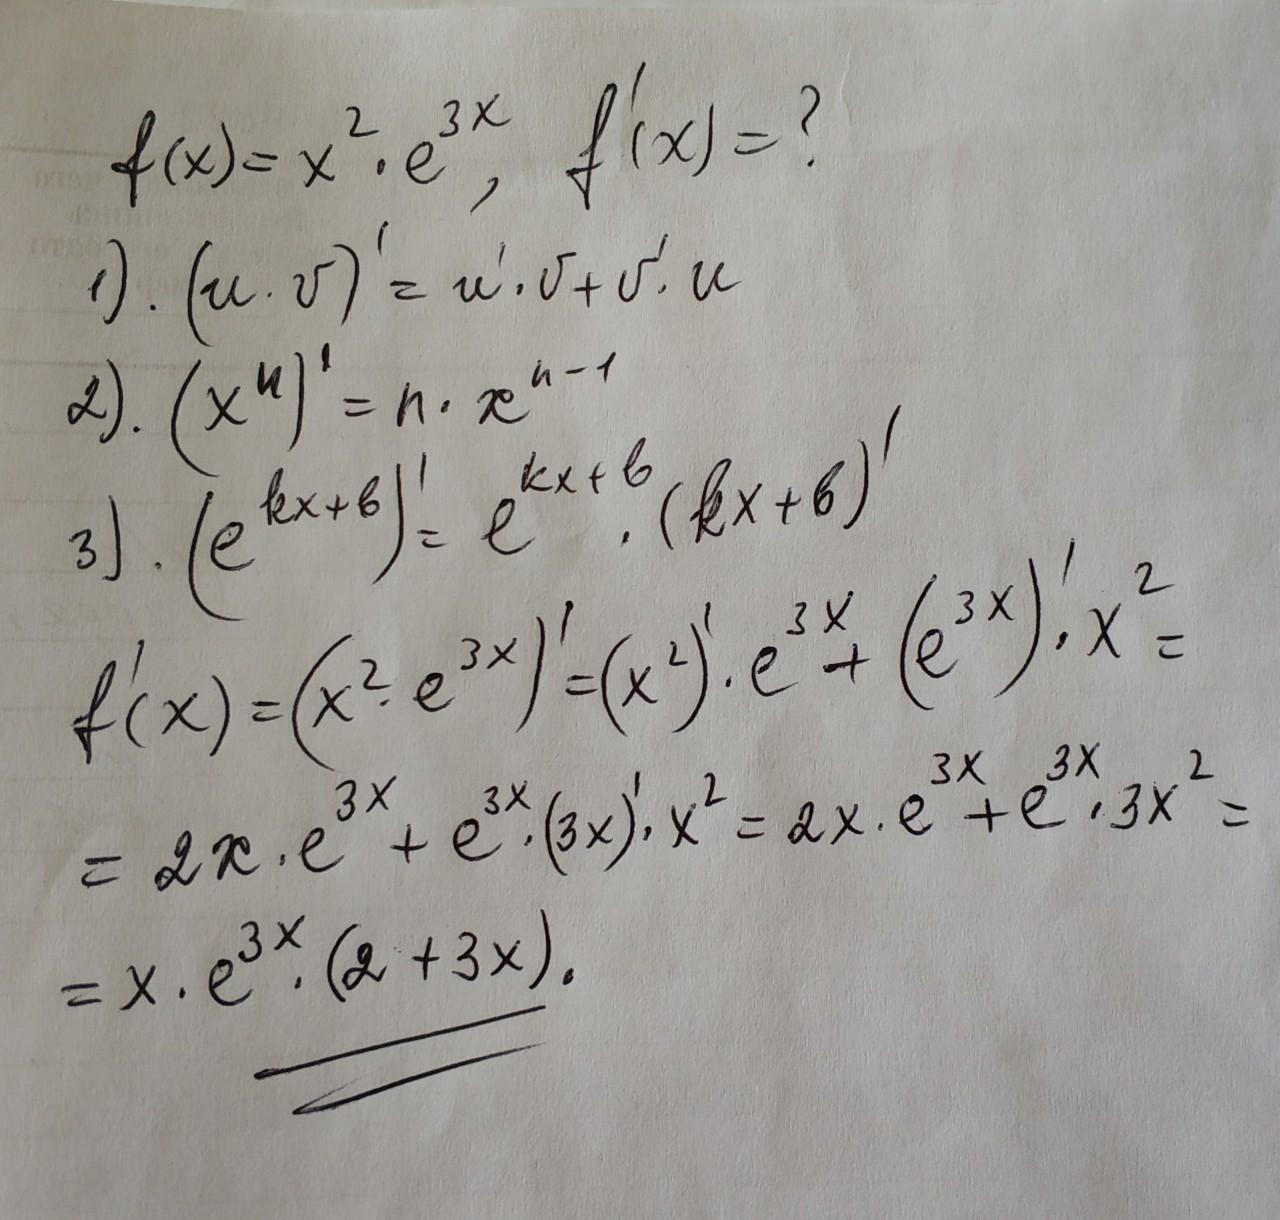 f(x) = x² · e³ˣ, f'(x) = ?
1). (u · v)' = u' · v + v' · u
2). (xⁿ)' = n · xⁿ⁻¹
3). (e^(kx+b))' = e^(kx+b) · (kx+b)'
f'(x) = (x² · e³ˣ)' = (x²)' · e³ˣ + (e³ˣ)' · x² =
= 2x · e³ˣ + e³ˣ · (3x)' · x² = 2x · e³ˣ + e³ˣ · 3x² =
= x · e³ˣ · (2 + 3x).